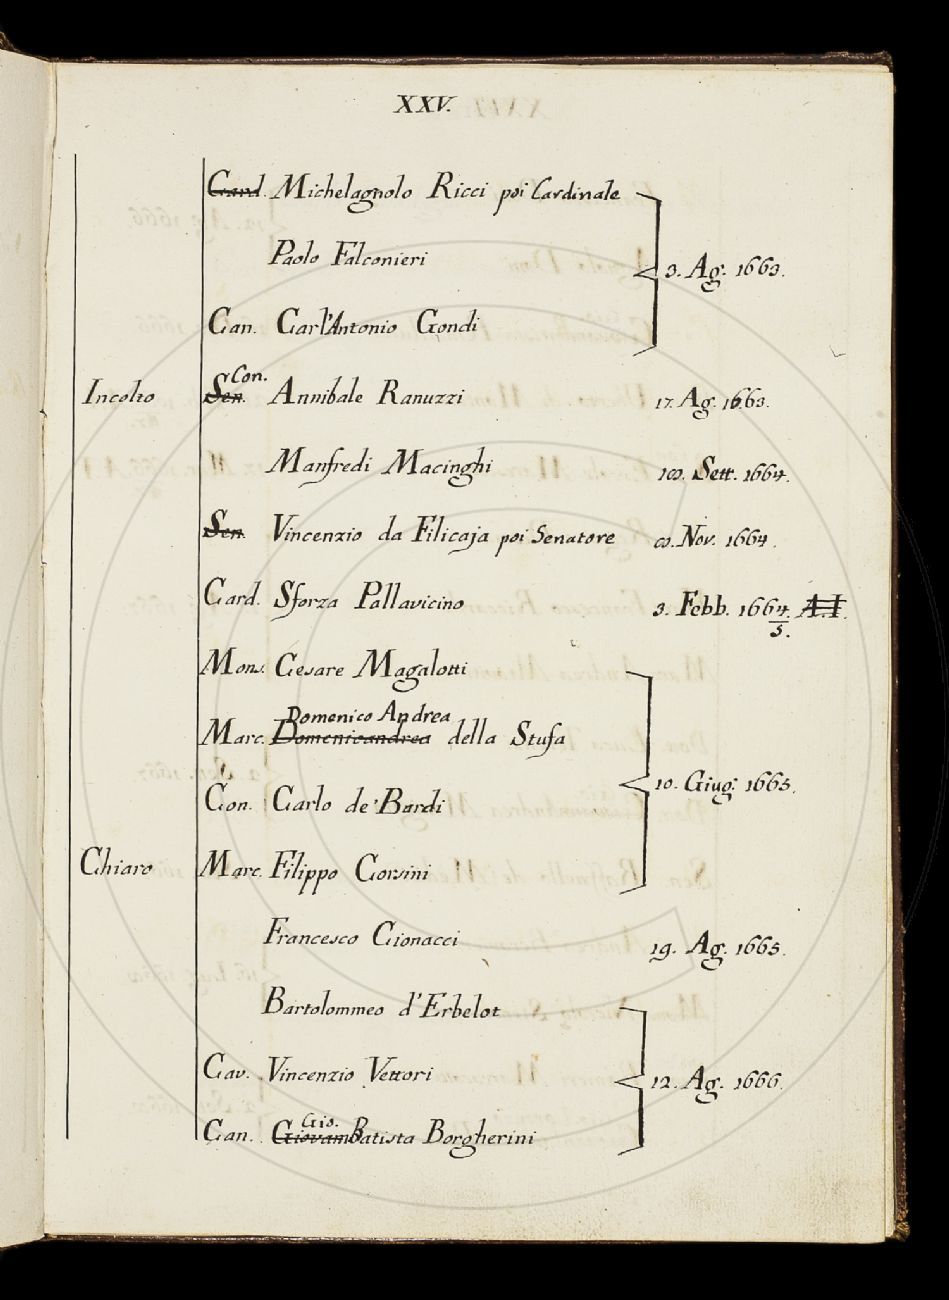 XXV.
Card. Michelagnolo Ricci poi Cardinale
Paolo Falconieri
3. Ag. 1663.
Can. Carl'Antonio Gondi
Con.
Incolto Sen. Annibale Ranuzzi 17. Ag. 1663.
Manfredi Macinghi Sett. 1664.
Sen. Vincenzio da Filicaja poi Senatore Nov. 1664.
Card. Sforza Pallavicino 3. Febb. 1664. A.I.
5.
Mons. Cesare Magalotti
Domenico Andrea
Marc. Domenicandrea della Stufa
10. Giug. 1665.
Con. Carlo de' Bardi
Chiaro Marc. Filippo Corsini
Francesco Cionacci 19. Ag. 1665.
Bartolommeo d'Erbelot
Cav. Vincenzio Vettori 12. Ag. 1666.
Gio.
Can. GiovamBatista Borgherini